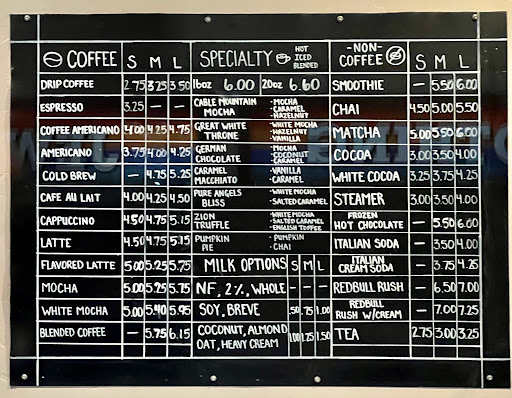 COFFEE S M L
DRIP COFFEE 2.75 3.25 3.50
ESPRESSO 3.25 — —
COFFEE AMERICANO 4.00 4.25 4.75
AMERICANO 3.75 4.00 4.25
COLD BREW — 4.75 5.25
CAFE AU LAIT 4.00 4.25 4.50
CAPPUCCINO 4.50 4.75 5.15
LATTE 4.50 4.75 5.15
FLAVORED LATTE 5.00 5.25 5.75
MOCHA 5.00 5.25 5.75
WHITE MOCHA 5.00 5.40 5.95
BLENDED COFFEE — 5.75 6.15
SPECIALTY HOT
ICED
BLENDED
16oz 6.00 20oz 6.60
CABLE MOUNTAIN
MOCHA
-MOCHA
-CARAMEL
-HAZELNUT
GREAT WHITE
THRONE
-WHITE MOCHA
-HAZELNUT
-VANILLA
GERMAN
CHOCOLATE
-MOCHA
-COCONUT
-CARAMEL
CARAMEL
MACCHIATO
-VANILLA
-CARAMEL
PURE ANGELS
BLISS
-WHITE MOCHA
-SALTED CARAMEL
ZION
TRUFFLE
-WHITE MOCHA
-SALTED CARAMEL
-ENGLISH TOFFEE
PUMPKIN
PIE
-PUMPKIN
-CHAI
MILK OPTIONS S M L
NF, 2%, WHOLE — — —
SOY, BREVE .50 .75 1.00
COCONUT, ALMOND
OAT, HEAVY CREAM 1.00 1.25 1.50
-NON-
COFFEE S M L
SMOOTHIE — 5.50 6.00
CHAI 4.50 5.00 5.50
MATCHA 5.00 5.50 6.00
COCOA 3.00 3.50 4.00
WHITE COCOA 3.25 3.75 4.25
STEAMER 3.00 3.50 4.00
FROZEN
HOT CHOCOLATE — 5.50 6.00
ITALIAN SODA — 3.50 4.00
ITALIAN
CREAM SODA — 3.75 4.25
REDBULL RUSH — 6.50 7.00
REDBULL
RUSH W/CREAM — 7.00 7.25
TEA 2.75 3.00 3.25